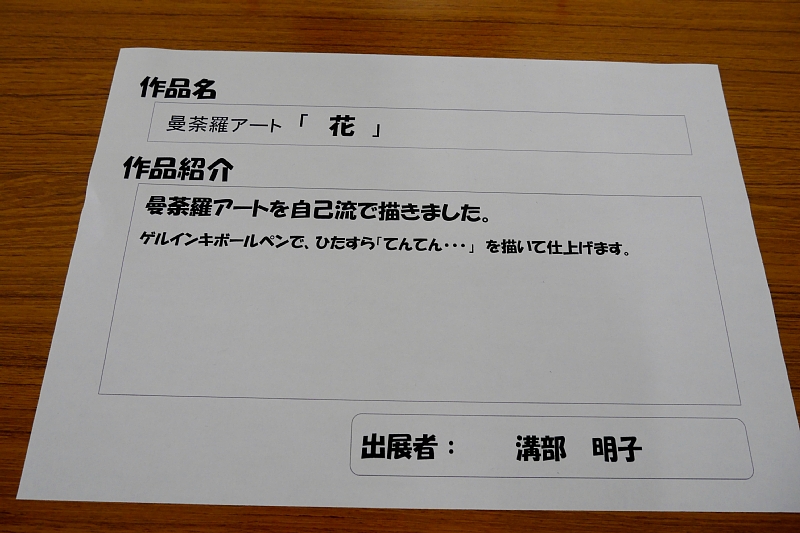 作品名
曼荼羅アート「　花　」
作品紹介
曼荼羅アートを自己流で描きました。
ゲルインキボールペンで、ひたすら「てんてん・・・」を描いて仕上げます。
出展者：　溝部　明子